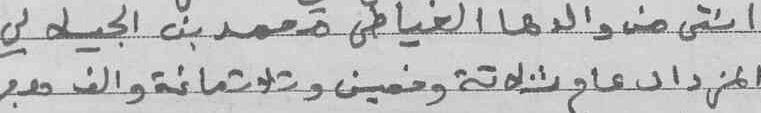 انتى من والدها العياطى محمد بن الجيلالي
المزداد عام ثلاثة وخمسين وثلاثمائة والف